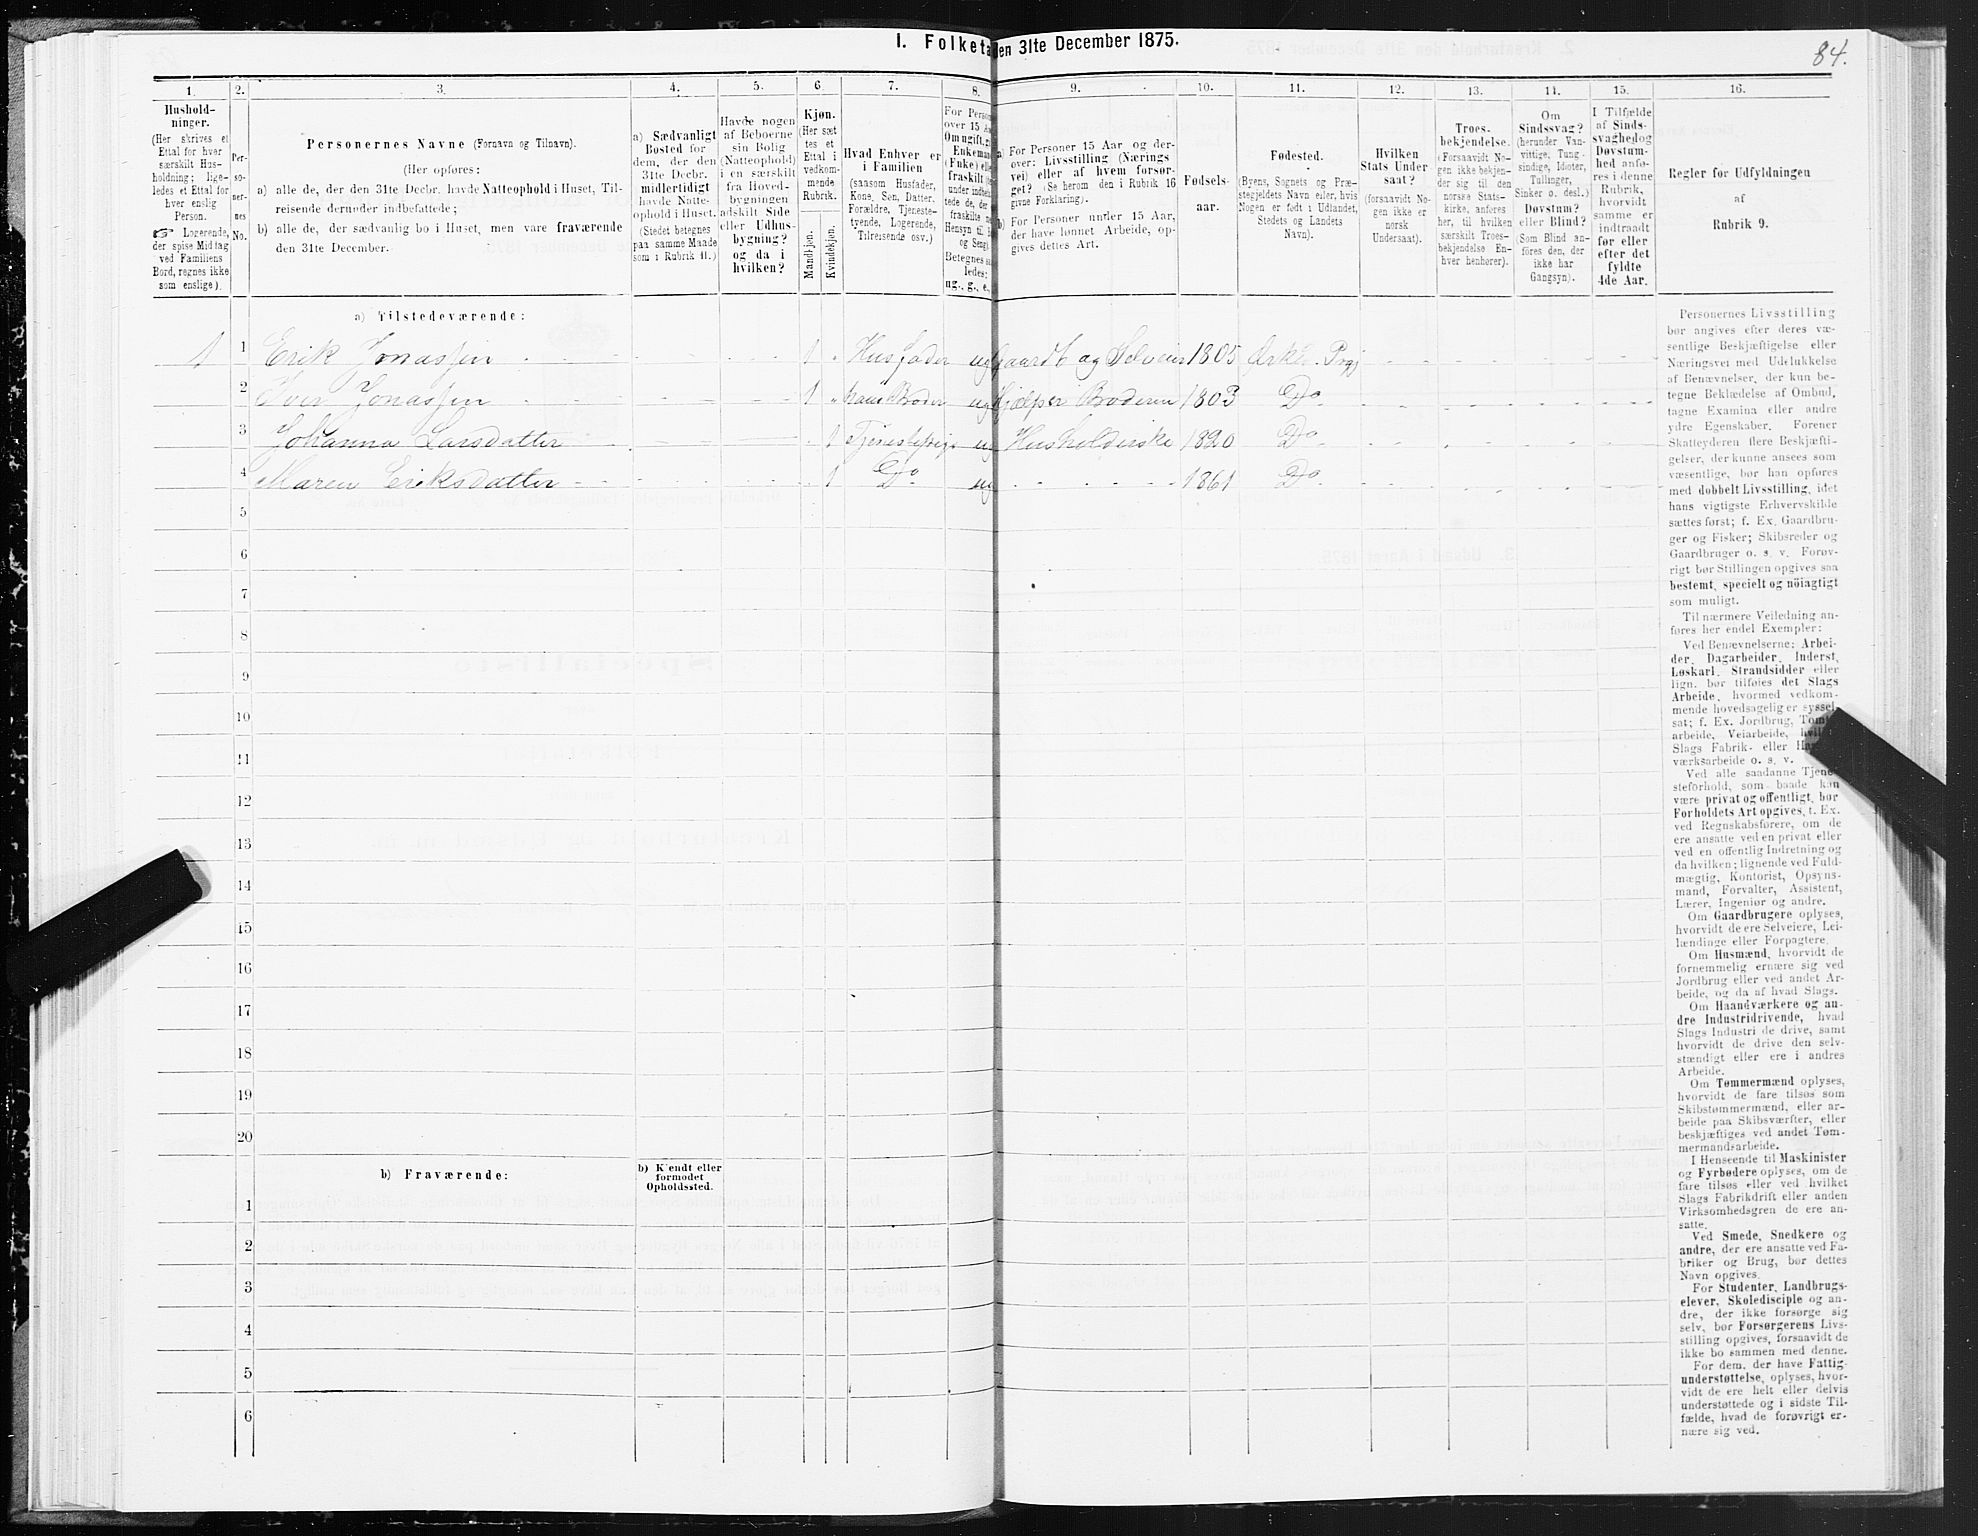 84.
I. Folketa
en 31te December 1875.
1. 2. 3. 4. 5. 6. 7. 8. 9. 10. 11. 12. 13. 14. 15. 16.
Hushold-
ninger.
(Her skrives et
Ettal for hver
særskilt Hus-
holdning; lige-
ledes et Ettal for
hver enslig
Person.
☞ Logerende,
der spise Middag
ved Familiens
Bord, regnes ikke
som enslige).
Per-
so-
ner-
nes
No.
Personernes Navne (Fornavn og Tilnavn).
(Her opføres:
a) alle de, der den 31te Decbr. havde Natteophold i Huset, Til-
reisende derunder indbefattede;
b) alle de, der sædvanlig bo i Huset, men vare fraværende
den 31te December.
a) Sædvanligt
Bosted for
dem, der den
31te Decbr.
midlertidigt
havde Natte-
ophold i Huset.
(Stedet betegnes
paa samme Maade
som i Rubrik 11.)
Havde nogen
af Beboerne
sin Bolig
(Natteophold)
i en særskilt
fra Hoved-
bygningen
adskilt Side
eller Udhus-
bygning?
og da i
hvilken?
Kjøn.
(Her sæt
tes et
Ettal i
vedkom-
mende
Rubrik.
Mandkjøn.
Kvindekjøn.
Hvad Enhver er
i Familien
(saasom Husfader,
Kone, Søn, Datter,
Forældre, Tjeneste-
tyende, Logerende,
Tilreisende osv.)
For Person
over 15 Aa
Om ugift, g
Enkemand
(Enke) elle
fraskilt (he
under indbe
tede de, der
fraskilte m
Hensyn til B
og Seng).
Betegnes sa
ledes:
ug., g., e.,
a) For Personer 15 Aar og der-
over: Livsstilling (Nærings
vei) eller af hvem forsør-
get? (Se herom den i Rubrik 16
givne Forklaring).
b) For Personer under 15 Aar,
der have lønnet Arbeide, op-
gives dettes Art.
Fødsels-
aar.
Fødested.
(Byens, Sognets og Præ-
stegjeldets Navn eller, hvis
Nogen er født i Udlandet,
Stedets og Landets
Navn).
Hvilken
Stats Under
saat?
(forsaavidt No-
gen ikke er
norsk
Undersaat).
Troes-
bekjendelse.
(Forsaavidt No-
gen ikke bekjen-
der sig til den
norske Stats-
kirke, anføres
her, til hvilken
særskilt Troes-
bekjendelse En-
hver henhører).
Om
Sindssvag?
(herunder Van-
vittige, Tung-
sindige, Idioter,
Tullinger,
Sinker o. desl.)
Døvstum?
eller Blind?
(Som Blind an-
føres den, der
ikke har
Gangsyn).
I Tilfælde
af Sinds-
svaghed og
Døvstum-
hed anfø-
res i denne
Rubrik,
hvorvidt
samme er
indtraadt
før eller
efter det
fyldte
4de Aar.
Regler for Udfyldningen
af
Rubrik 9.
a) Tilstedeværende:
1 1 Erik Jonassen 1 Husfader ug Gaardb og Selveier 1805 Ørkd. Prgj
2 Iver Jonassen 1 hans Broder ug Hjælper Broderen 1803 Do
3 Johanna Larsdatter 1 ug Husholderske 1820 Do
4 Maren Eriksdatter 1 Do ug 1861 Do
5
6
7
8
9
10
11
12
13
14
15
16
17
18
19
20
b) Fraværende:
b) Kjendt eller
formodet
Opholdssted.
1
2
3
4
5
6
Personernes Livsstilling
bør angives efter deres væ-
sentlige Beskjæftigelse eller
Næringsvei med Udelukkelse
af Benævnelser, der kun be-
tegne Beklædelse af Ombud,
tagne Examina eller andre
ydre Egenskaber. Forener
Skatteyderen flere Beskjæfti-
gelser, der kunne ansees som
væsentlige, bør han opføres
med dobbelt Livsstilling, idet
hans vigtigste Erhvervskilde
sættes først; f. Ex. Gaardbru-
ger og Fisker; Skibsreder og
Gaardbruger o. s. v. Forøv-
rigt bør Stillingen opgives saa
bestemt, specielt og nöiagtigt
som muligt.
Til nærmere Veiledning an-
føres her endel Exempler:
Ved Benævnelserne: Arbei-
der, Dagarbeider, Inderst,
Løskarl, Strandsidder eller
lign. bør tilføies det Slags
Arbeide, hvormed vedkom-
mende hovedsagelig er syssel-
sat; f. Ex. Jordbrug, Tomt-
arbeide, Veiarbeide, hvil
Slags Fabrik- eller Ha
værksarbeide o. s. v.
Ved alle saadanne Tjene-
steforhold, som baade kan
være privat og offentligt, bør
Forholdets Art opgives, t. Ex.
ved Regnskabsførere, om de
ere ansatte ved en privat eller
ved en offentlig Indretning og
da hvilken; lignende ved Fuld-
mægtig, Kontorist, Opsyns-
mand, Forvalter, Assistent,
Lærer, Ingeniør og andre.
Om Gaardbrugere oplyses,
hvorvidt de ere Selveiere, Lei-
lændinge eller Forpagtere.
Om Husmænd, hvorvidt de
fornemmelig ernære sig ved
Jordbrug eller ved andet Ar-
beide, og da af hvad Slags.
Om Haandværkere og an-
dre Industridrivende, hvad
Slags Industri de drive, samt
hvorvidt de drive den selv-
stændigt eller ere i andres
Arbeide.
Om Tømmermænd oplyses,
hvorvidt de fare tilsøs som
Skibstømmermænd, eller ar-
beide paa Skibsværfter, eller
beskjæftiges ved andet Tøm-
mermandsarbeide.
I Henseende til Maskinister
og Fyrbødere oplyses, om de
fare tilsøs eller ved hvilket
Slags Fabrikdrift eller anden
Virksomhedsgren de ere an-
satte.
Ved Smede, Snedkere og
andre, der ere ansatte ved Fa-
briker og Brug, bør dettes
Navn opgives.
For Studenter, Landbrugs-
elever, Skoledisciple og an-
dre, der ikke forsørge sig
selv, bør Forsørgerens Livs-
stilling opgives, forsaavidt de
ikke bo sammen med denne.
For dem, der have Fattig-
understøttelse, oplyses, hvor-
vidt de ere helt eller delvis
understøttede og i sidste Til-
fælde, hvad de forøvrigt er-
nære sig ved.